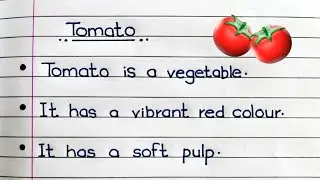 Tomato
• Tomato is a vegetable.
• It has a vibrant red colour.
• It has a soft pulp.